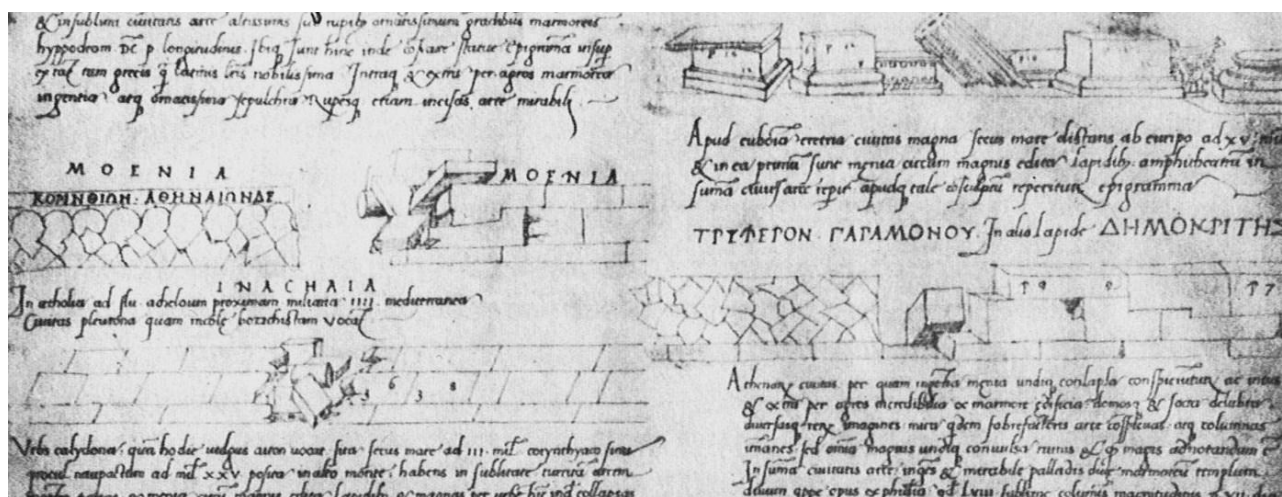 & in sublimi civitatis arce altissimis sub rupibus ornatissimum gradibus marmoreis
hyppodrom. DC p longitudinis. Ibiq sunt hinc inde statue epigrama
tam grecis q latinis nobilissima Intraq & extra per agros marmorea
ingentia atq ornatissima sepulchra Rupesq etiam incisas arte mirabili
MOENIA
ΚΟΜΝΘΙΩΗ · ΑΘΗΝΑΙΩΝΔΕ
MOENIA
IN ACHAIA
In aetholia ad flu. acheloum proximam miliaria IIII mediterranea
Civitas pleurona quam vocat
6 3 8
Urbs calydona, quam hodie vulgus auton vocat, sita secus mare ad III mil. corynthyaco sinu
procul naupactum ad mil. XXV posita in alto monte, habens in sublimitate turritam arcem
magnis lapidib. & magnas per urbe hinc ind collapsas
Apud euboia eretria civitas magna secus mare distans ab euripo ad XV
& in ea primum sunt menia circum magnis edita lapidib. amphitheatrum in
suma civitatis arce apudq tale reperitur epigramma
ΤΡΥΦΕΡΟΝ · ΓΑΡΑΜΟΝΟΥ. In alio lapide ΔΗΜΟΚΡΙΤΗΣ
Athenarum civitas per quam ingentia menia undiq conlapsa conspiciuntur ac intus
& extra per agros incredibilia ex marmore edificia domosq & sacra delubra
diversasq rerum imagines mira quidem fabrefactoris arte conspicuas. atq columnas
imanes sed omnia magnis undiq convulsa ruinis & q magis adnotandum
In suma civitatis arce ingens & mirabile palladis dive marmoreum templum
divum opus ex phidia ad LVIII sublime columnis magnitudine